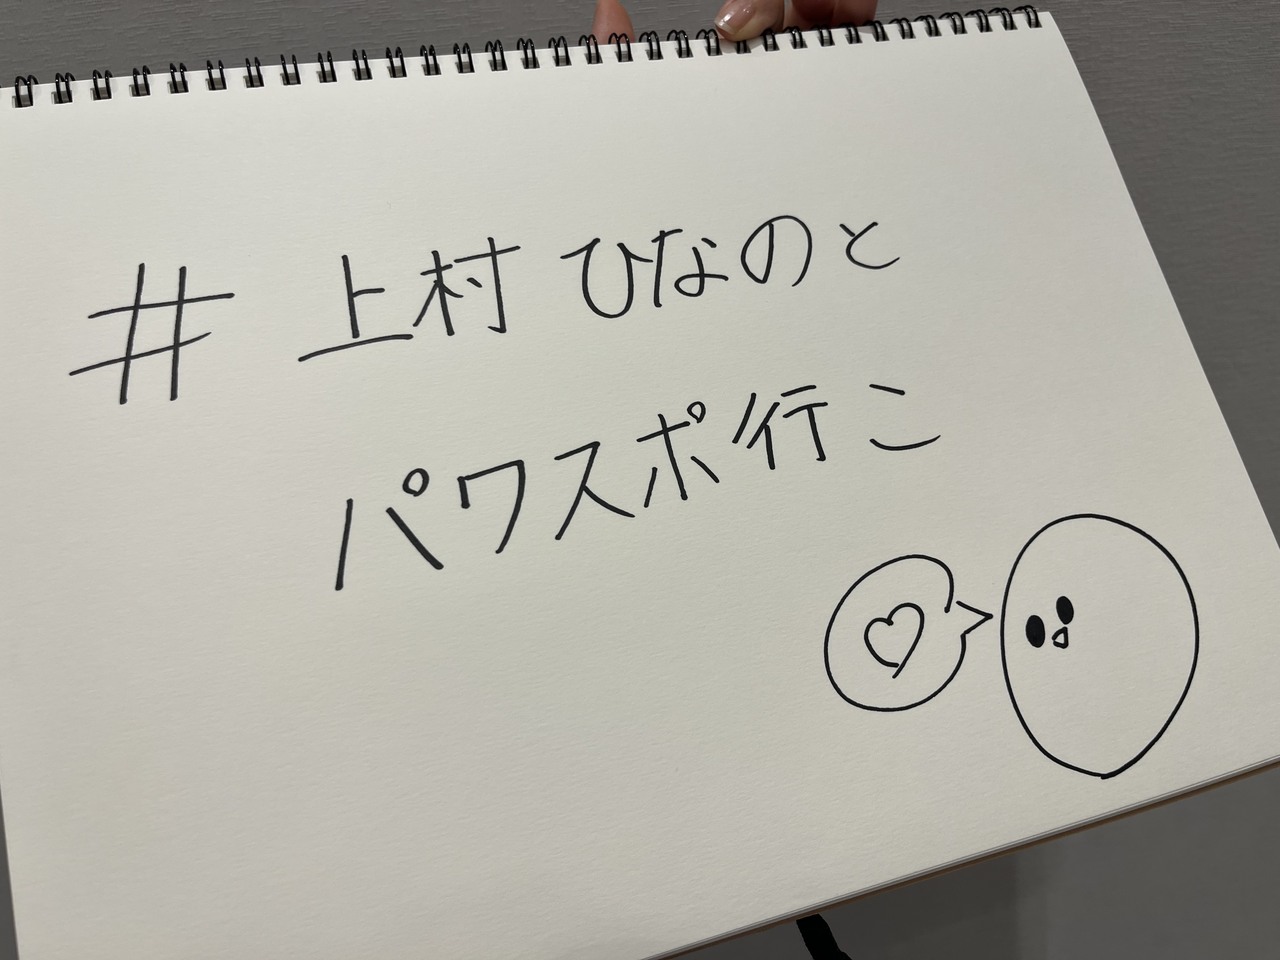 # 上村ひなのと
パワスポ行こ